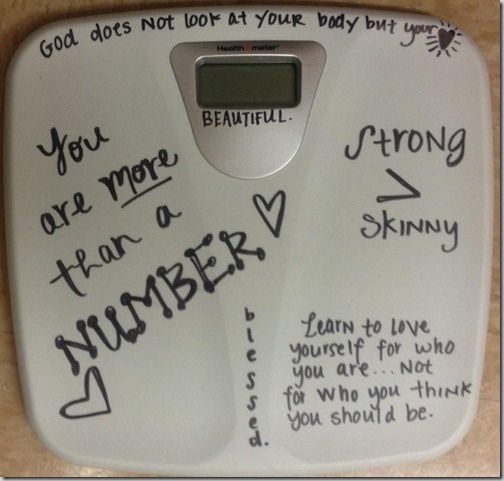 God does Not look at your body but your
Health o meter
BEAUTIFUL.
You
are more
than a
NUMBER
StRoNG
>
SKiNNY
blessed.
Learn to love
yourself for who
you are... Not
for who you think
you should be.